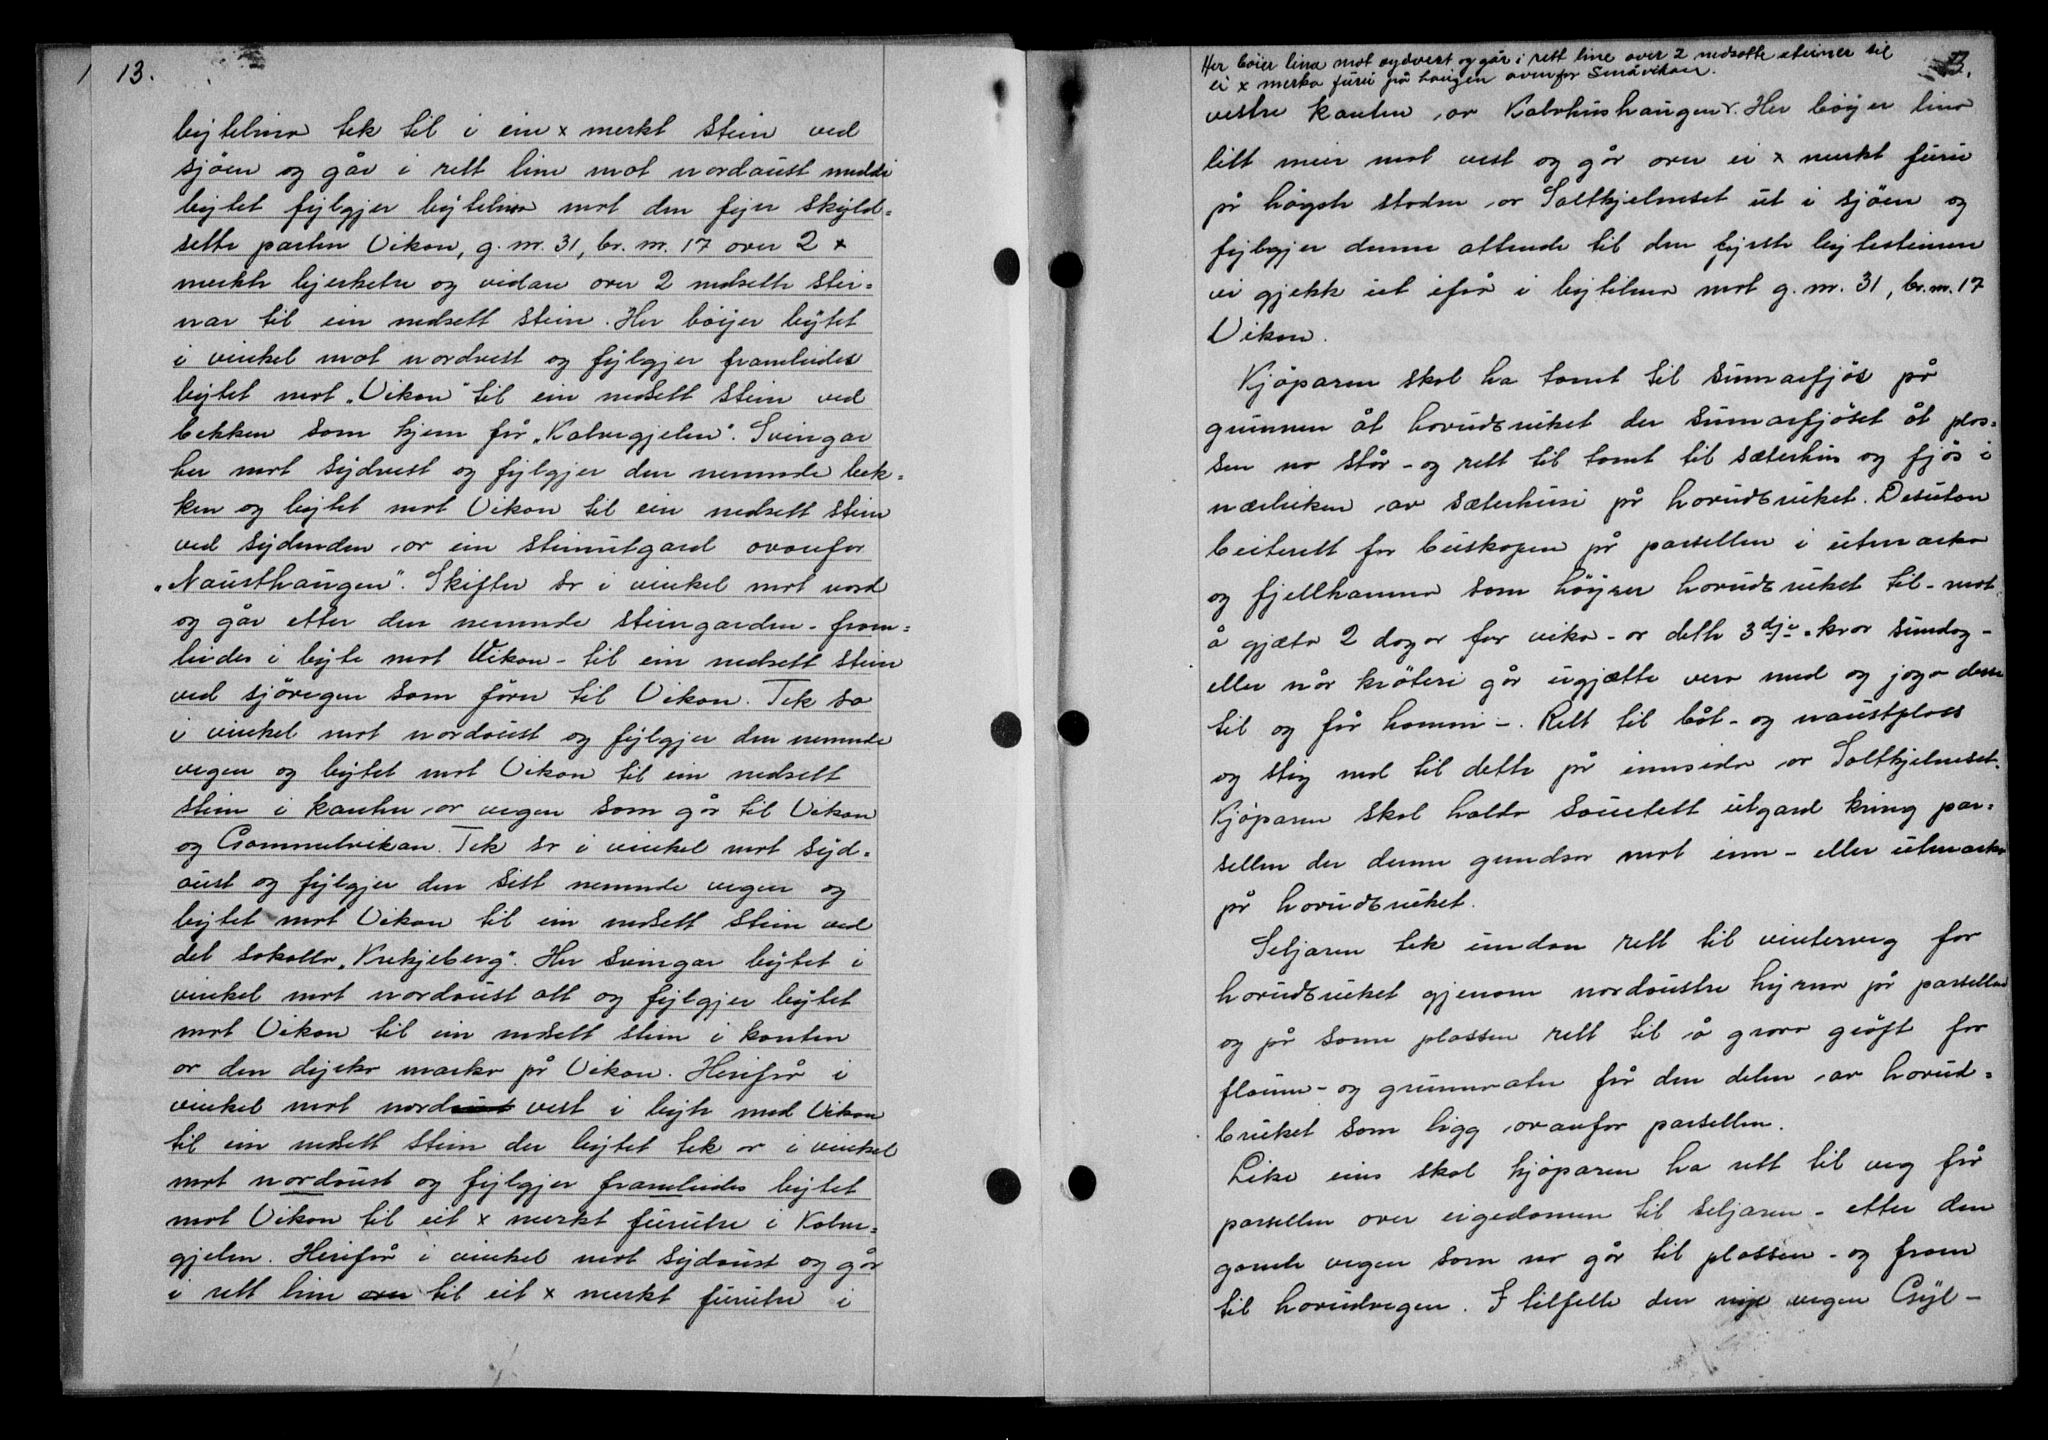 13.
bytelina tek til i ein x merkt stein ved
sjöen og går i rett line mot nordaust
bytet fylgjer bytelina mot den fyrr skyld=
sette parten Vikan, g. nr. 31, br. nr. 17 over 2 x
merkte bjerketre og vidare over 2 nedsette stei=
nar til ein nedsett stein. Her böyer bytet
i vinkel mot nordvest og fylgjer framleides
bytet mot "Vikan" til ein nedsett stein ved
bekken som kjem frå "Kalvegjelen". Svingar
her mot sydvest og fylgjer den nemnde bek=
ken og bytet mot Vikan til ein nedsett stein
ved sydenden av ein steinutgard ovanfor
"Nausthaugen". Skifter so i vinkel mot nord
og går etter den nemnde steingarden - fram=
leides i byte mot Vikan - til ein nedsett stein
ved sjövegen som förer til Vikan. Tek so
i vinkel mot nordaust og fylgjer den nemnde
vegen og bytet mot Vikan til ein nedsett
stein i kanten av vegen som går til Vikan
og Gammelvikan. Tek so i vinkel mot syd=
aust og fylgjer den sist nemnde vegen og
bytet mot Vikan til ein nedsett stein ved
det sokalla "Krekjeberg". Her svingar bytet i
vinkel mot nordaust att og fylgjer bytet
mot Vikan til ein nedsett stein i kanten
av den dyrka marka på Vikan. Herifrå i
vinkel mot nordaust vest i byte med Vikan
til ein nedsett stein der bytet tek av i vinkel
mot nordaust og fylgjer framleides bytet
mot Vikan til eit x merkt furutre i Kalve=
gjelen. Herifrå i vinkel mot sydaust og går
i rett line over til eit x merkt furutre i
Her böier lina mot sydvest og går i rett line over 2 nedsatte steiner til
ei x merka furu på haugen ovenfor Småvikan.
13.
vestre kanten av Kalvhushaugen. Her böyer lina
litt meir mot vest og går over ei x merkt furu
på högste staden av Saltkjelneset ut i sjöen og
fylgjer denne attende til den fyrste bytesteinen
vi gjekk ut ifrå i bytelina mot g. nr. 31, br. nr. 17
Vikan.
Kjöparen skal ha tomt til sumarfjös på
grunnen åt hovudbruket der sumarfjöset åt plas=
sen no står - og rett til tomt til sæterhus og fjös i
nærleiken av sæterhusi på hovudbruket. Desutan
beiterett for buskapen på parsellen i utmarka
og fjellhamna som höyrer hovudbruket til - mot
å gjæta 2 dagar for veka - av dette 3dje kvar sundag -
eller når kröteri går ugjætte vera med og jaga desse
til og frå hamni -. Rett til båt- og naustplass
og stig ned til dette på innsida av Saltkjelneset.
Kjöparen skal halda sauetett utgard kring par=
sellen der denne grensar mot inn- eller utmarka
på hovudbruket.
Seljaren tek undan rett til vinterveg for
hovudbruket gjenom nordaustre hyrna på parsellen
og på same plassen rett til å grava gröft for
flaum- og grunnvatn frå den delen av hovud=
bruket som ligg ovanfor parsellen.
Like eins skal kjöparen ha rett til veg frå
parsellen over eigedomen til seljaren - etter den
gamle vegen som no går til plassen - og fram
til hovudvegen. I tilfelle den nye vegen Gyl-